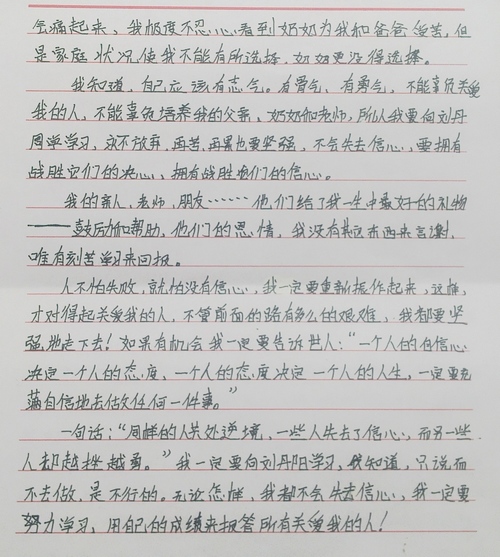 会痛起来，我极度不忍心看到奶奶为我和爸爸受苦，但
是家庭状况使我不能有所选择，奶奶更没得选择。
我知道，自己应该有志气。有骨气、有勇气，不能辜负关爱
我的人，不能辜负培养我的父亲、奶奶和老师，所以我要向刘丹
同学学习，永不放弃，再苦再累也要坚强，不会失去信心，要拥有
战胜它们的决心，拥有战胜它们的信心。
我的亲人，老师，朋友……他们给了我一生中最好的礼物
——鼓励和帮助，他们的恩情，我没有其它东西来言谢，
唯有刻苦学习来回报。
人不怕失败，就怕没有信心，我一定要重新振作起来，这样，
才对得起关爱我的人，不管前面的路有多么的艰难，我都要坚
强地走下去！如果有机会我一定要告诉世人：“一个人的自信心
决定一个人的态度、一个人的态度决定一个人的人生，一定要充
满自信地去做任何一件事。”
一句话：“同样的人共处逆境，一些人失去了信心，而另一些
人却越挫越勇。”我一定要向刘丹阳学习，我知道，只说而
不去做，是不行的。无论怎样，我都不会失去信心，我一定要
努力学习，用自己的成绩来报答所有关爱我的人！